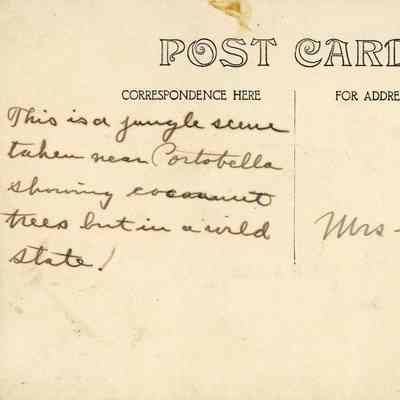 POST CARD
CORRESPONDENCE HERE
FOR ADDRE
This is a jungle scene
taken near Portobella
showing cocoanut
trees but in a wild
state!
Mrs-